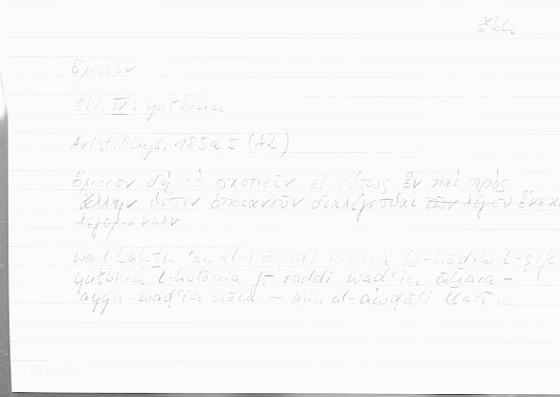 šbh
ὅμοιον
šbh IV: yušbihu
Arist. Phys. 185a5 (A2)
ὅμοιον δὴ τὸ σκοπεῖν εἰ οὕτως ἓν καὶ πρὸς
ἄλλην θέσιν ὁποιανοῦν διαλέγεσθαι λόγου ἕνεκα
λεγομένων
wa-l-baḥṯu ʿan al-wāḥidi bi-hāḏihi l-ṣifa
yušbihu l-kalāma fī raddi waḍʿin āḫara –
ayyu waḍʿin kāna – min al-awḍāʿi llatī